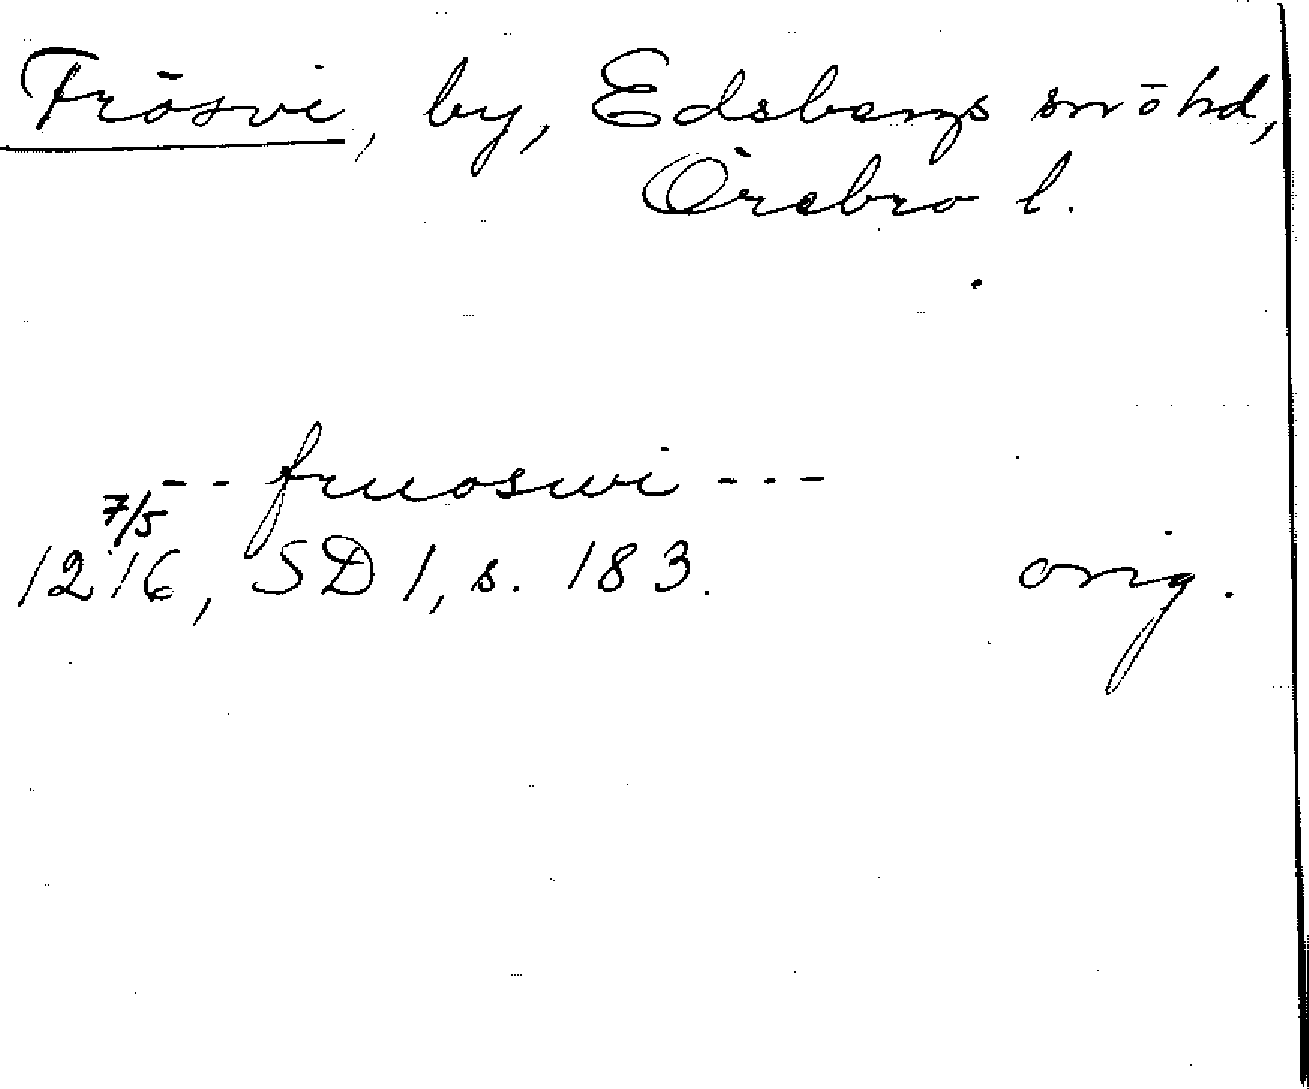 Frösvi, by, Edsbergs sn ō hd,
Örebro l.
-- fruoswi ---
7/5
1216, SD 1, s. 183. orig.